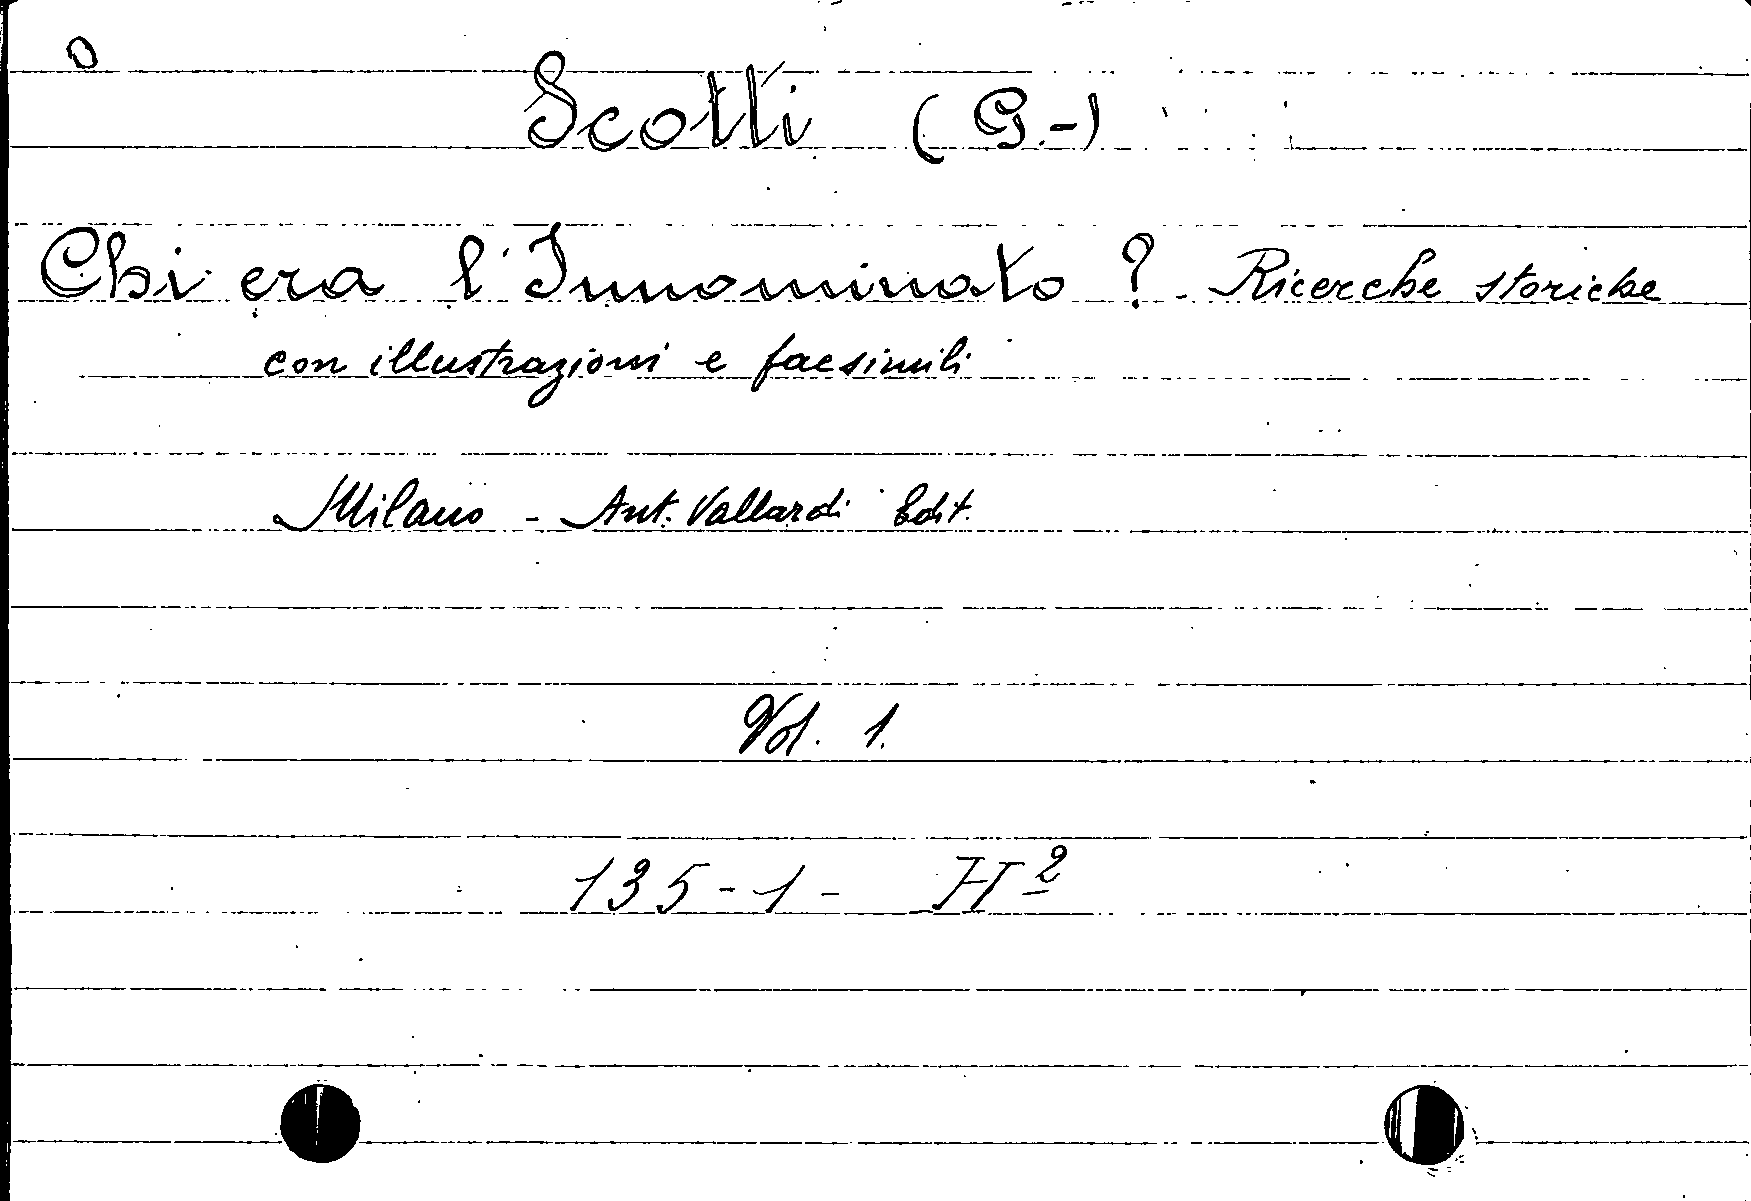 Scotti (G.-)
Chi era l'Innominato? Ricerche storiche
con illustrazioni e facsimili
Milano - Ant. Vallardi Edit.
Vol. 1.
135-1- H²